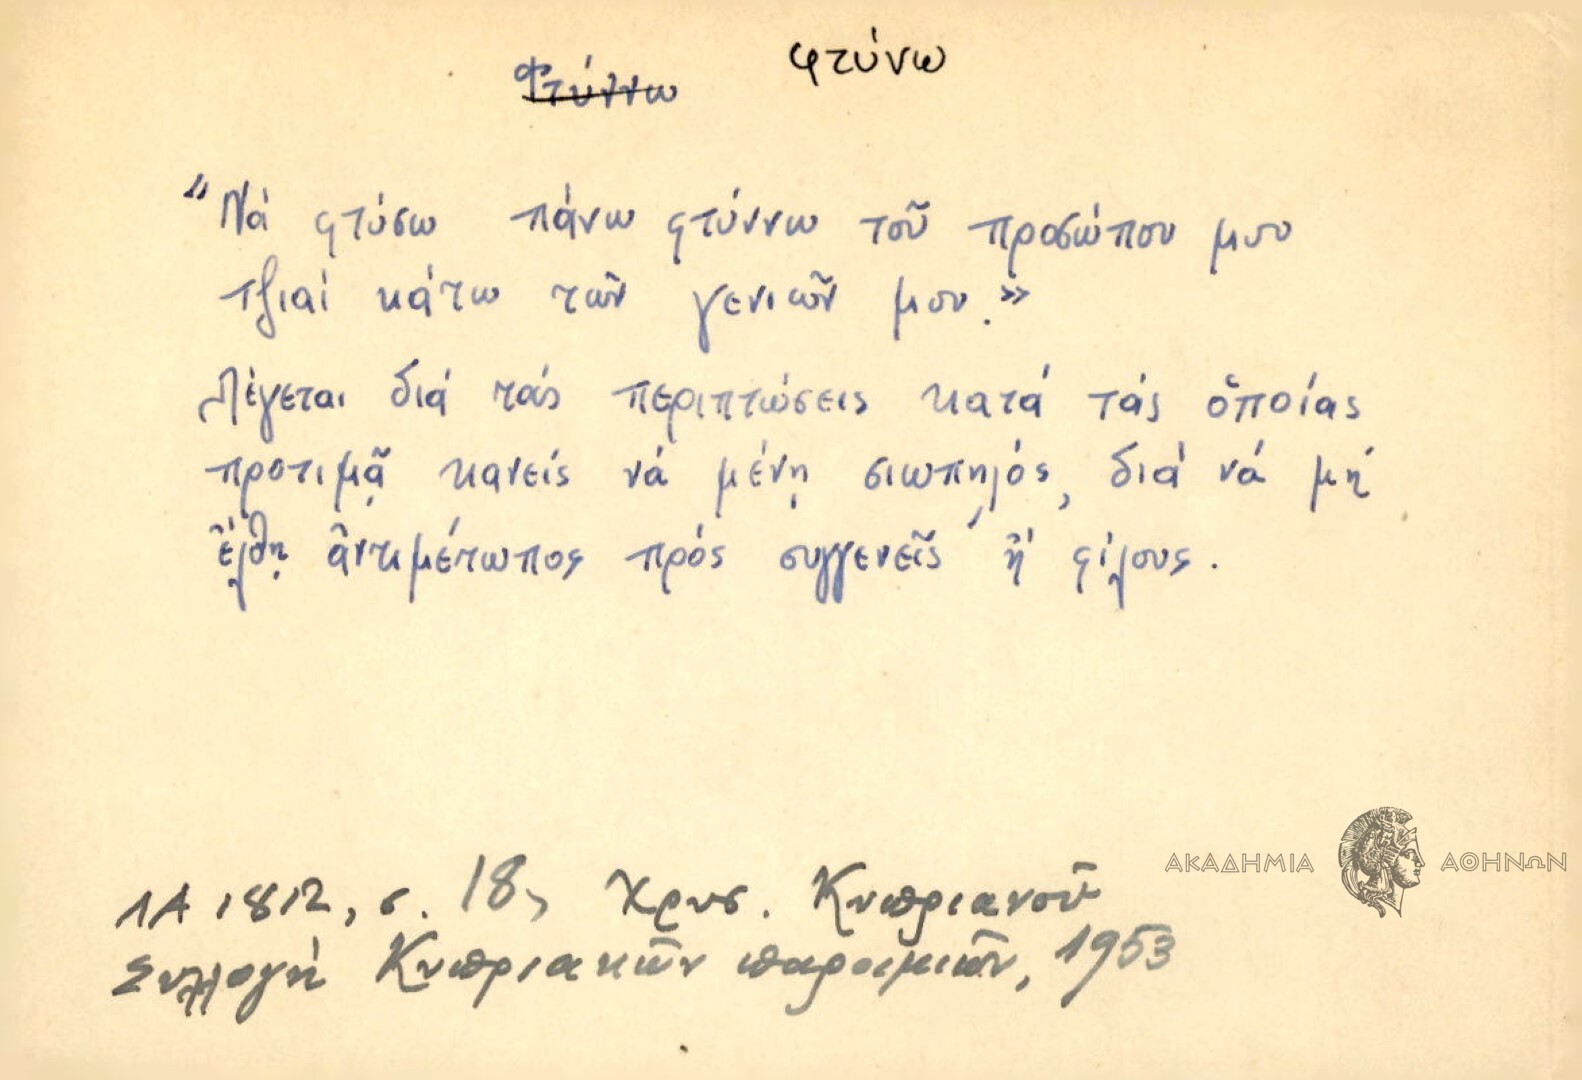 Φτύννω φτύνω
"Νά φτύσω πάνω φτύννω τοῦ προσώπου μου
τζιαί κάτω τῶν γενιῶν μου."
Λέγεται διά τάς περιπτώσεις κατά τάς ὁποίας
προτιμᾷ κανείς νά μένῃ σιωπηλός, διά νά μή
ἔλθῃ ἀντιμέτωπος πρός συγγενεῖς ἤ φίλους.
ΑΚΑΔΗΜΙΑ ΑΘΗΝΩΝ
ΛΑ 1812, σ. 18, Χρυσ. Κυπριανοῦ
Συλλογή Κυπριακῶν παροιμιῶν, 1953